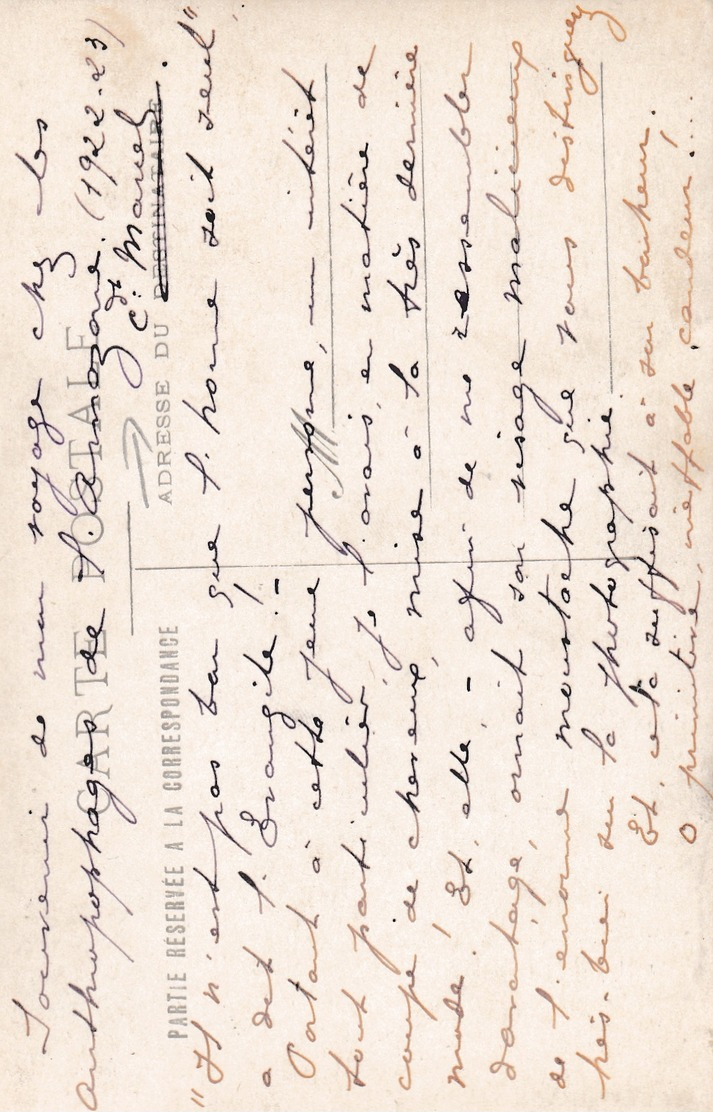 Souvenir de mon voyage chez les
Anthropophages de l'Amazone. (1922-23)
Ct Marcel
CARTE POSTALE
PARTIE RÉSERVÉE A LA CORRESPONDANCE
ADRESSE DU DESTINATAIRE
M
"Il n'est pas bon que l'homme soit seul"
a dit l'Évangile ! -
Portant à cette jeune personne, un intérêt
tout particulier, je l'avais, en matière de
coupe de cheveux, mise à la très dernière
mode ! Et elle, - afin de me ressembler
davantage, ornait son visage malicieux
de l'énorme moustache que vous distinguez
très-bien sur la photographie.
Et, cela suffisait à son bonheur.
O primitive, ineffable candeur !...